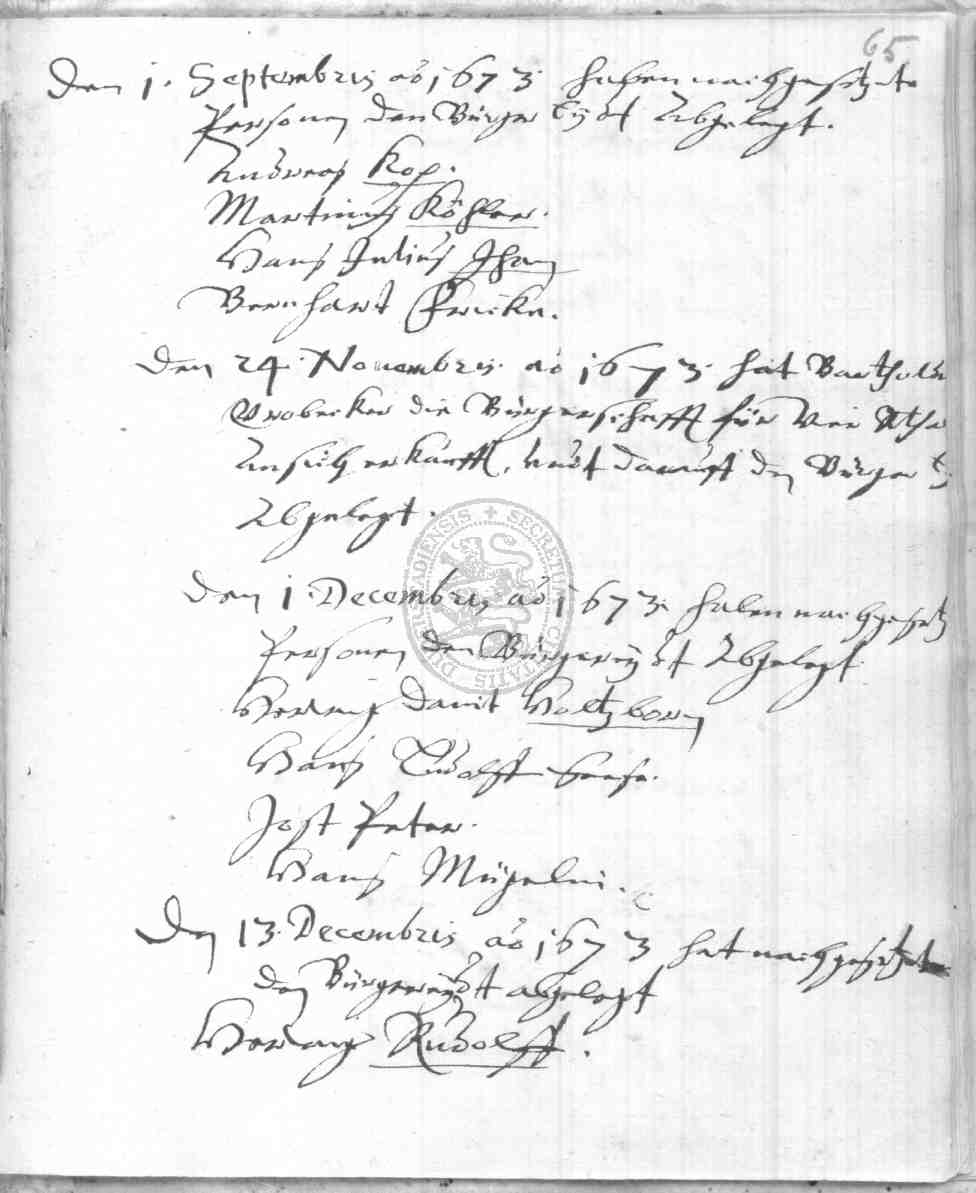 65
Den 1. Septembris ao 1673. haben nachgesetzte
Personen den Bürger Eydt Abgelegt.
Andreas Kop.
Martinus Köhler.
Hans Julius Jhan
Bernhart Fricke.
Den 24. Novembris. ao 1673. hat Barthold
die Bürgerschafft für
erkaufft, undt darauf den Bürger
Abgelegt.
Den 1. Decembris ao 1673. haben nachgesetz
Personen den Bürgereydt Abgelegt
Herman Davit Holtzborn
Hans
Jost Peter.
Hans
Den 13. Decembris ao 1673 hat nachgesetzter
den Bürgereydt abgelegt
Herman Rudolff.
SECRETUM CIVITATIS